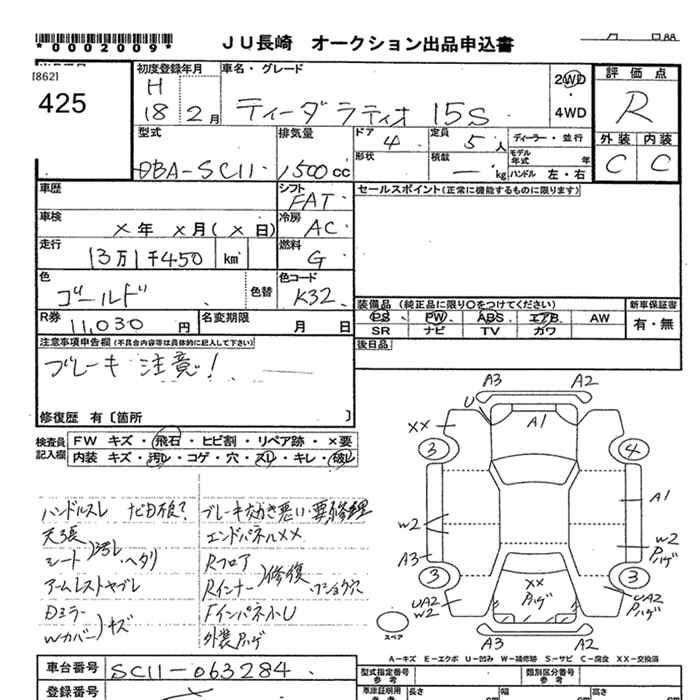 *0002009*
JU長崎 オークション出品申込書
月 日
[862]
425
初度登録年月 車名・グレード
H 18 2月 ティーダラティオ 15S
2WD・4WD
評価点
R
外装 内装
C C
型式 排気量 ドア 4 定員 5人 ディーラー・並行
DBA-SC11 1500cc
形状 積載 — kg モデル年式 年 ハンドル 左・右
車歴 シフト FAT
車検 ×年 ×月(×日) 冷房 AC
走行 13万1千450 km 燃料 G
色 ゴールド 色替 色コード K32
R券 11,030円 名変期限 月 日
セールスポイント(正常に機能するものに限ります)
装備品 (純正品に限り○をつけてください) 新車保証書
PS PW ABS エアB AW 有・無
SR ナビ TV カワ
後日品
注意事項申告欄(不具合内容等は具体的に記入して下さい)
ブレーキ注意!
修復歴 有〔箇所 〕
検査員記入欄
FW キズ・飛石・ヒビ割・リペア跡・×要
内装 キズ・汚レ・コゲ・穴・スレ・キレ・破レ
ハンドルスレ ナビ日根?
天張
シート)汚レ・ヘタリ
アームレストヤブレ
Dミラー
Wカバー)キズ
ブレーキ効き悪い・要修理
エンドパネルXX
Rフロア
Rインナー)修復
FインパネルU
外装ハゲ
A3 A2
U A1
XX
3 4
A1
W2
W2 ハゲ
A3
3 3
XX ハゲ
UA2 W2
UA2 ハゲ
A3 A2
スペア
A−キズ E−エクボ U−凹み W−補修跡 S−サビ C−腐食 XX−交換済
車台番号 SC11-063284
登録番号
型式指定番号 参考 類別区分番号 参考
長さ 幅 高さ